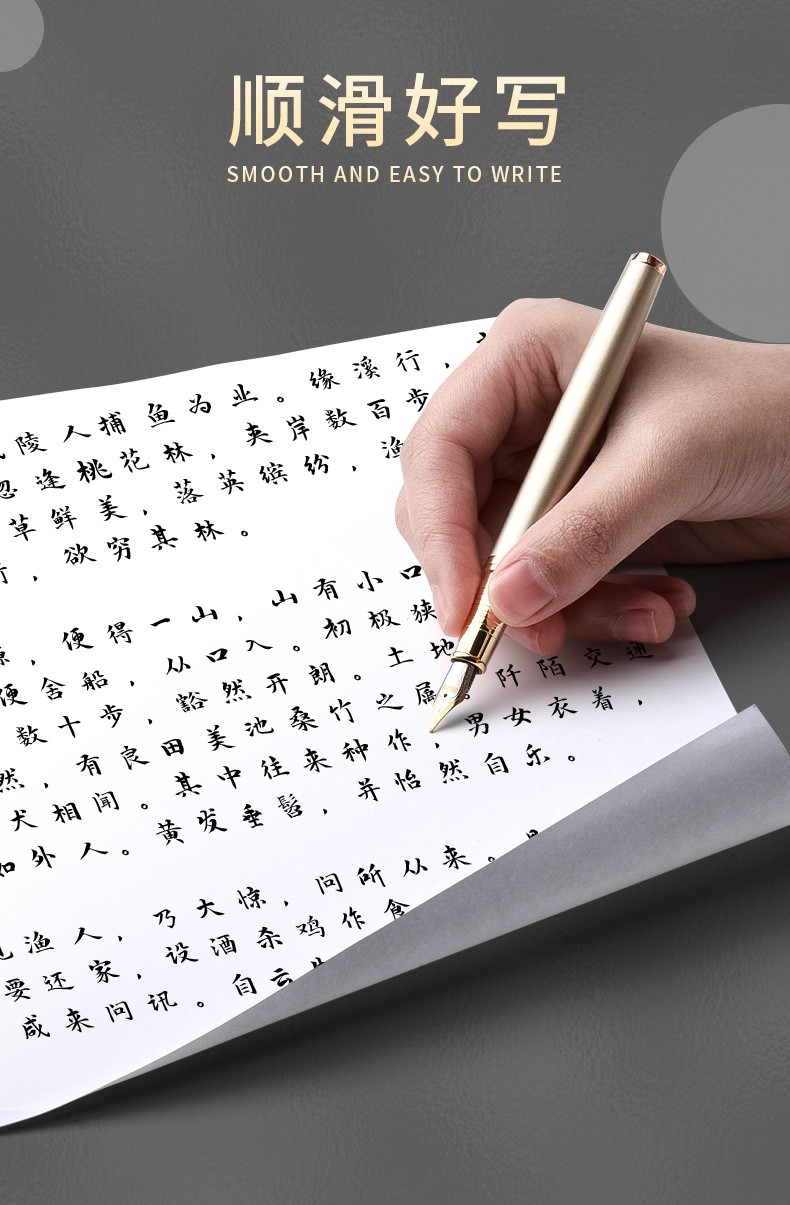 顺滑好写
SMOOTH AND EASY TO WRITE
陵人捕鱼为业。缘溪行，
忽逢桃花林，夹岸数百步
草鲜美，落英缤纷，渔
行，欲穷其林。
源，便得一山，山有小口
便舍船，从口入。初极狭
数十步，豁然开朗。土地
然，有良田美池桑竹之属。阡陌交通
犬相闻。其中往来种作，男女衣着，
如外人。黄发垂髫，并怡然自乐。
见渔人，乃大惊，问所从来。
要还家，设酒杀鸡作食
咸来问讯。自云